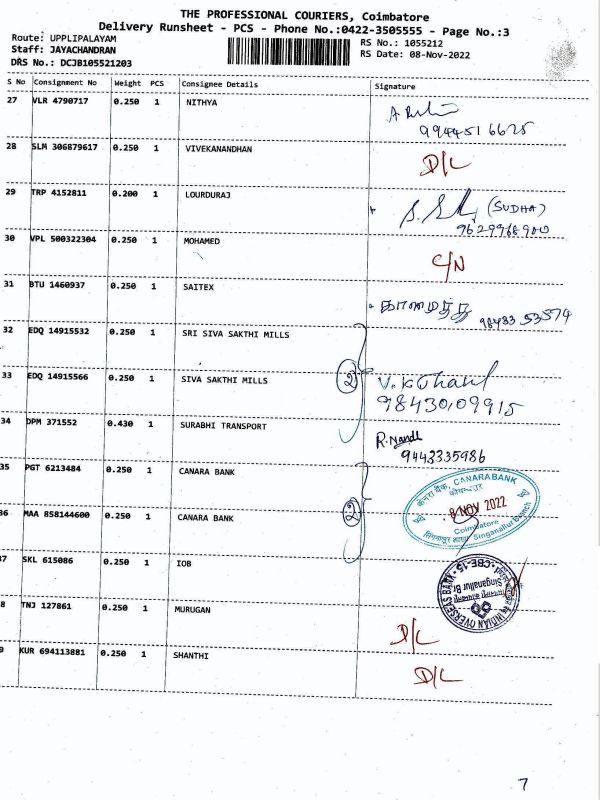 THE PROFESSIONAL COURIERS, Coimbatore
Delivery Runsheet - PCS - Phone No.:0422-3505555 - Page No.:3
Route: UPPLIPALAYAM
RS No.: 1055212
Staff: JAYACHANDRAN
RS Date: 08-Nov-2022
DRS No.: DCJB105521203
S No Consignment No Weight PCS Consignee Details Signature
27 VLR 4790717 0.250 1 NITHYA
9944516625
28 SLM 306879617 0.250 1 VIVEKANANDHAN D/L
29 TRP 4152811 0.200 1 LOURDURAJ (SUDHA)
9629968900
30 VPL 500322304 0.250 1 MOHAMED C/N
31 BTU 1460937 0.250 1 SAITEX
98433 53574
32 EDQ 14915532 0.250 1 SRI SIVA SAKTHI MILLS
33 EDQ 14915566 0.250 1 SIVA SAKTHI MILLS 2
9843009915
34 DPM 371552 0.430 1 SURABHI TRANSPORT R.Nandl
9443335986
35 PGT 6213484 0.250 1 CANARA BANK
केनरा बैंक, CANARA BANK
36 MAA 858144600 0.250 1 CANARA BANK 2
8 NOV 2022
Coimbatore
Singanallur Branch
37 SKL 615086 0.250 1 IOB
INDIAN OVERSEAS BANK CBE-15
Singanallur Br
8 TNJ 127861 0.250 1 MURUGAN D/L
9 KUR 694113881 0.250 1 SHANTHI D/L
7